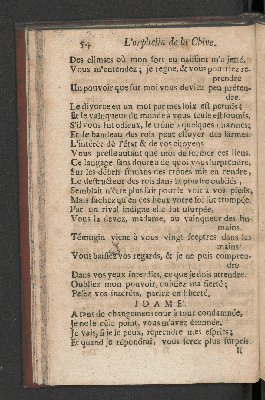 54 L'orphelin de la Chine.
Des climats où mon sort en naissant m'a jetté.
Vous m'entendez; je regne, & vous pourriez re-
prendre
Un pouvoir que sur moi vous deviez peu préten-
dre
Le divorce en un mot par mes loix est permis;
Et le vainqueur du monde à vous seule est soumis.
S'il vous fut odieux, le trône a quelques charmes;
Et le bandeau des rois peut essuyer des larmes.
L'intérêt de l'état & de vos citoyens
Vous presse autant que moi de former ces liens.
Ce langage sans doute a de quoi vous surprendre,
Sur les débris fumans des trônes mis en cendre,
Le destructeur des rois dans la poudre oubliés,
Semblait n'être plus fait pour se voir à vos pieds;
Mais sachez qu'en ces lieux votre foi fut trompée.
Par un rival indigne elle fut usurpée,
Vous la devez, madame, au vainqueur des hu-
mains.
Témugin vient à vous vingt sceptres dans les
mains.
Vous baissez vos regards, & je ne puis compren-
dre
Dans vos yeux interdits, ce que je dois attendre.
Oubliez mon pouvoir, oubliez ma fierté;
Pesez vos intérêts, parlez en liberté.
IDAMÉ.
A tant de changemens tour à tour condamnée,
Je ne le cèle point, vous m'avez étonnée.
Je vais, si je le peux, reprendre mes esprits;
Et quand je répondrai, vous serez plus surpris.
Il